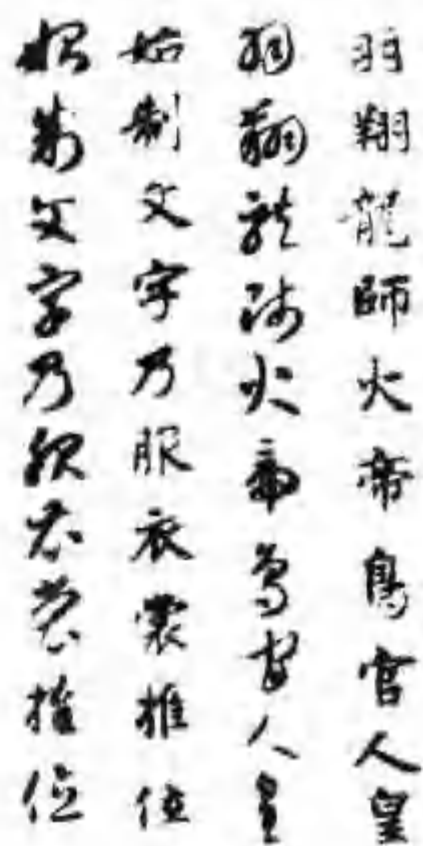 羽翔龍師火帝鳥官人皇
羽翔龍師火帝鳥官人皇
始制文字乃服衣裳推位
始制文字乃服衣裳推位